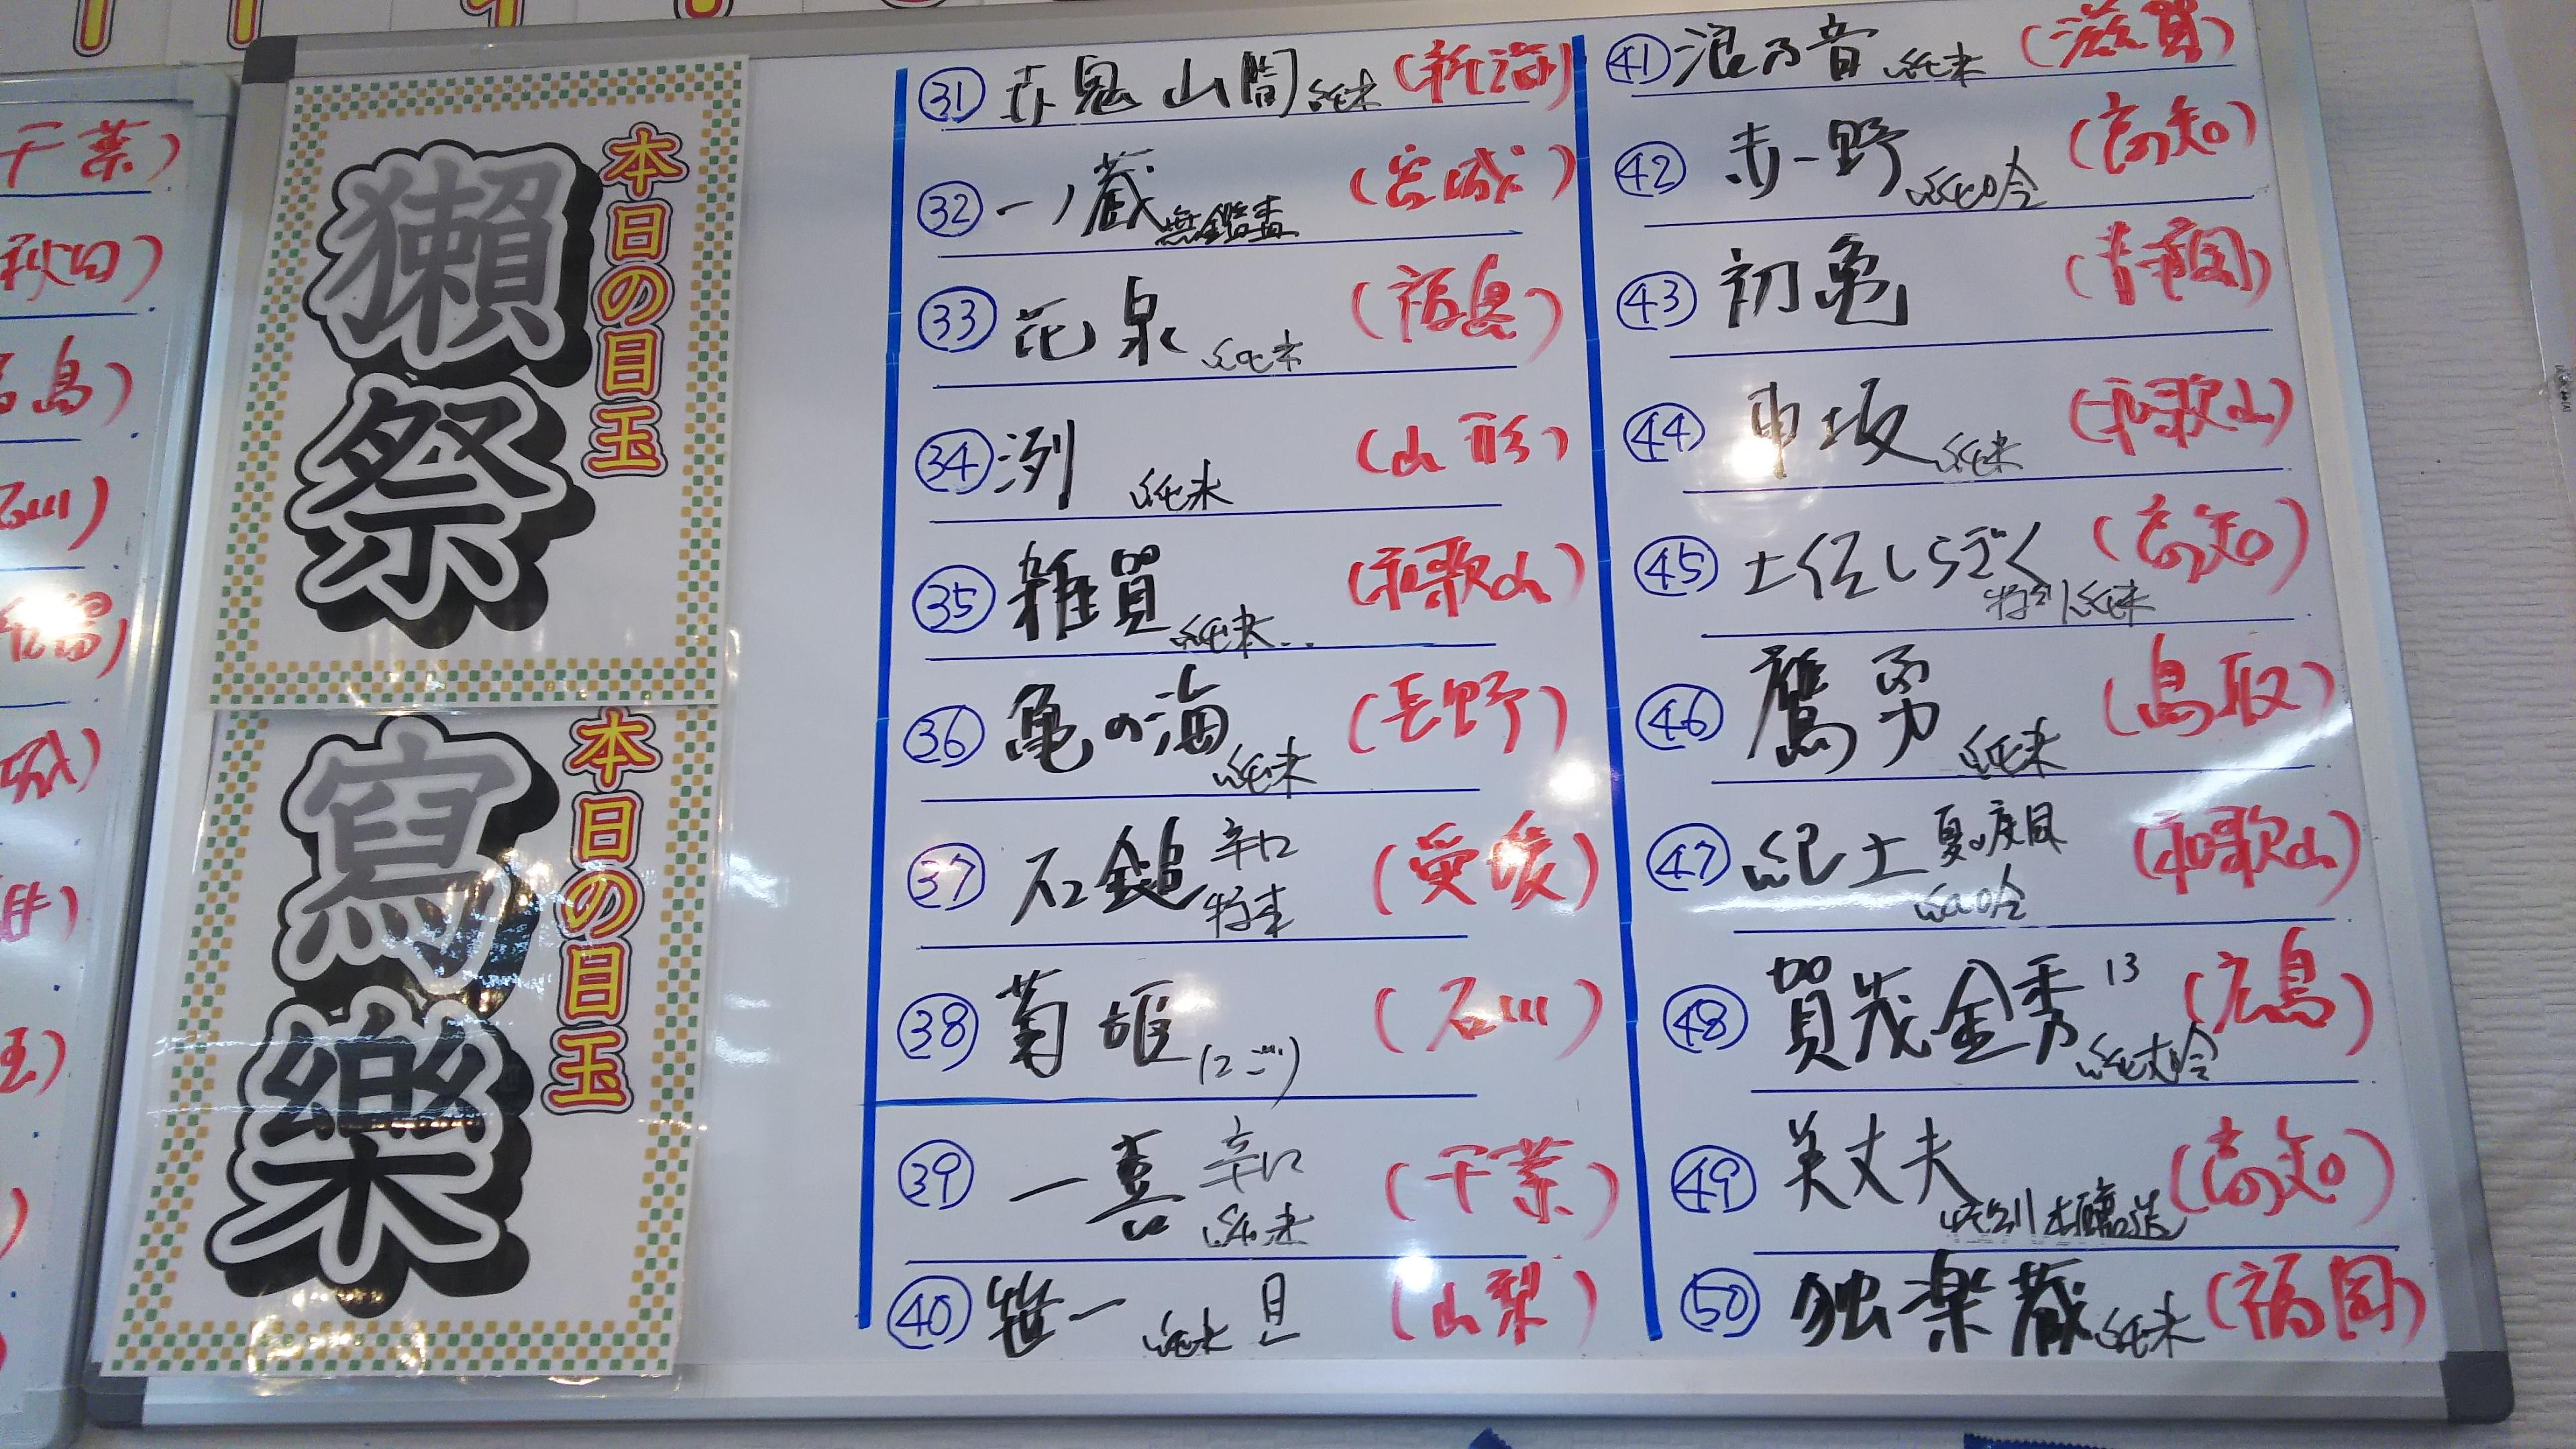 千葉)
秋田)
島)
石川)
城)
井)
玉)
本日の目玉
獺祭
本日の目玉
寫樂
㉛ 赤鬼山間 純米 (新潟)
㉜ 一ノ蔵 無鑑査 (宮城)
㉝ 花泉 純米 (福島)
㉞ 洌 純米 (山形)
㉟ 雑賀 純米 (和歌山)
㊱ 亀の海 純米 (長野)
㊲ 石鎚 辛口 (愛媛)
㊳ 菊姫 (にごり) (石川)
㊴ 一喜 辛口 純米 (千葉)
㊵ 笹一 純米 (山梨)
㊶ 浪乃音 純米 (滋賀)
㊷ 赤野 純吟 (高知)
㊸ 初亀 (静岡)
㊹ 車坂 純米 (和歌山)
㊺ 土佐しらぎく 特別純米 (高知)
㊻ 鷹勇 純米 (鳥取)
㊼ 紀土 夏ノ疾風 純吟 (和歌山)
㊽ 賀茂金秀 13 純大吟 (広島)
㊾ 美丈夫 特別本醸造 (高知)
㊿ 独楽蔵 純米 (福岡)